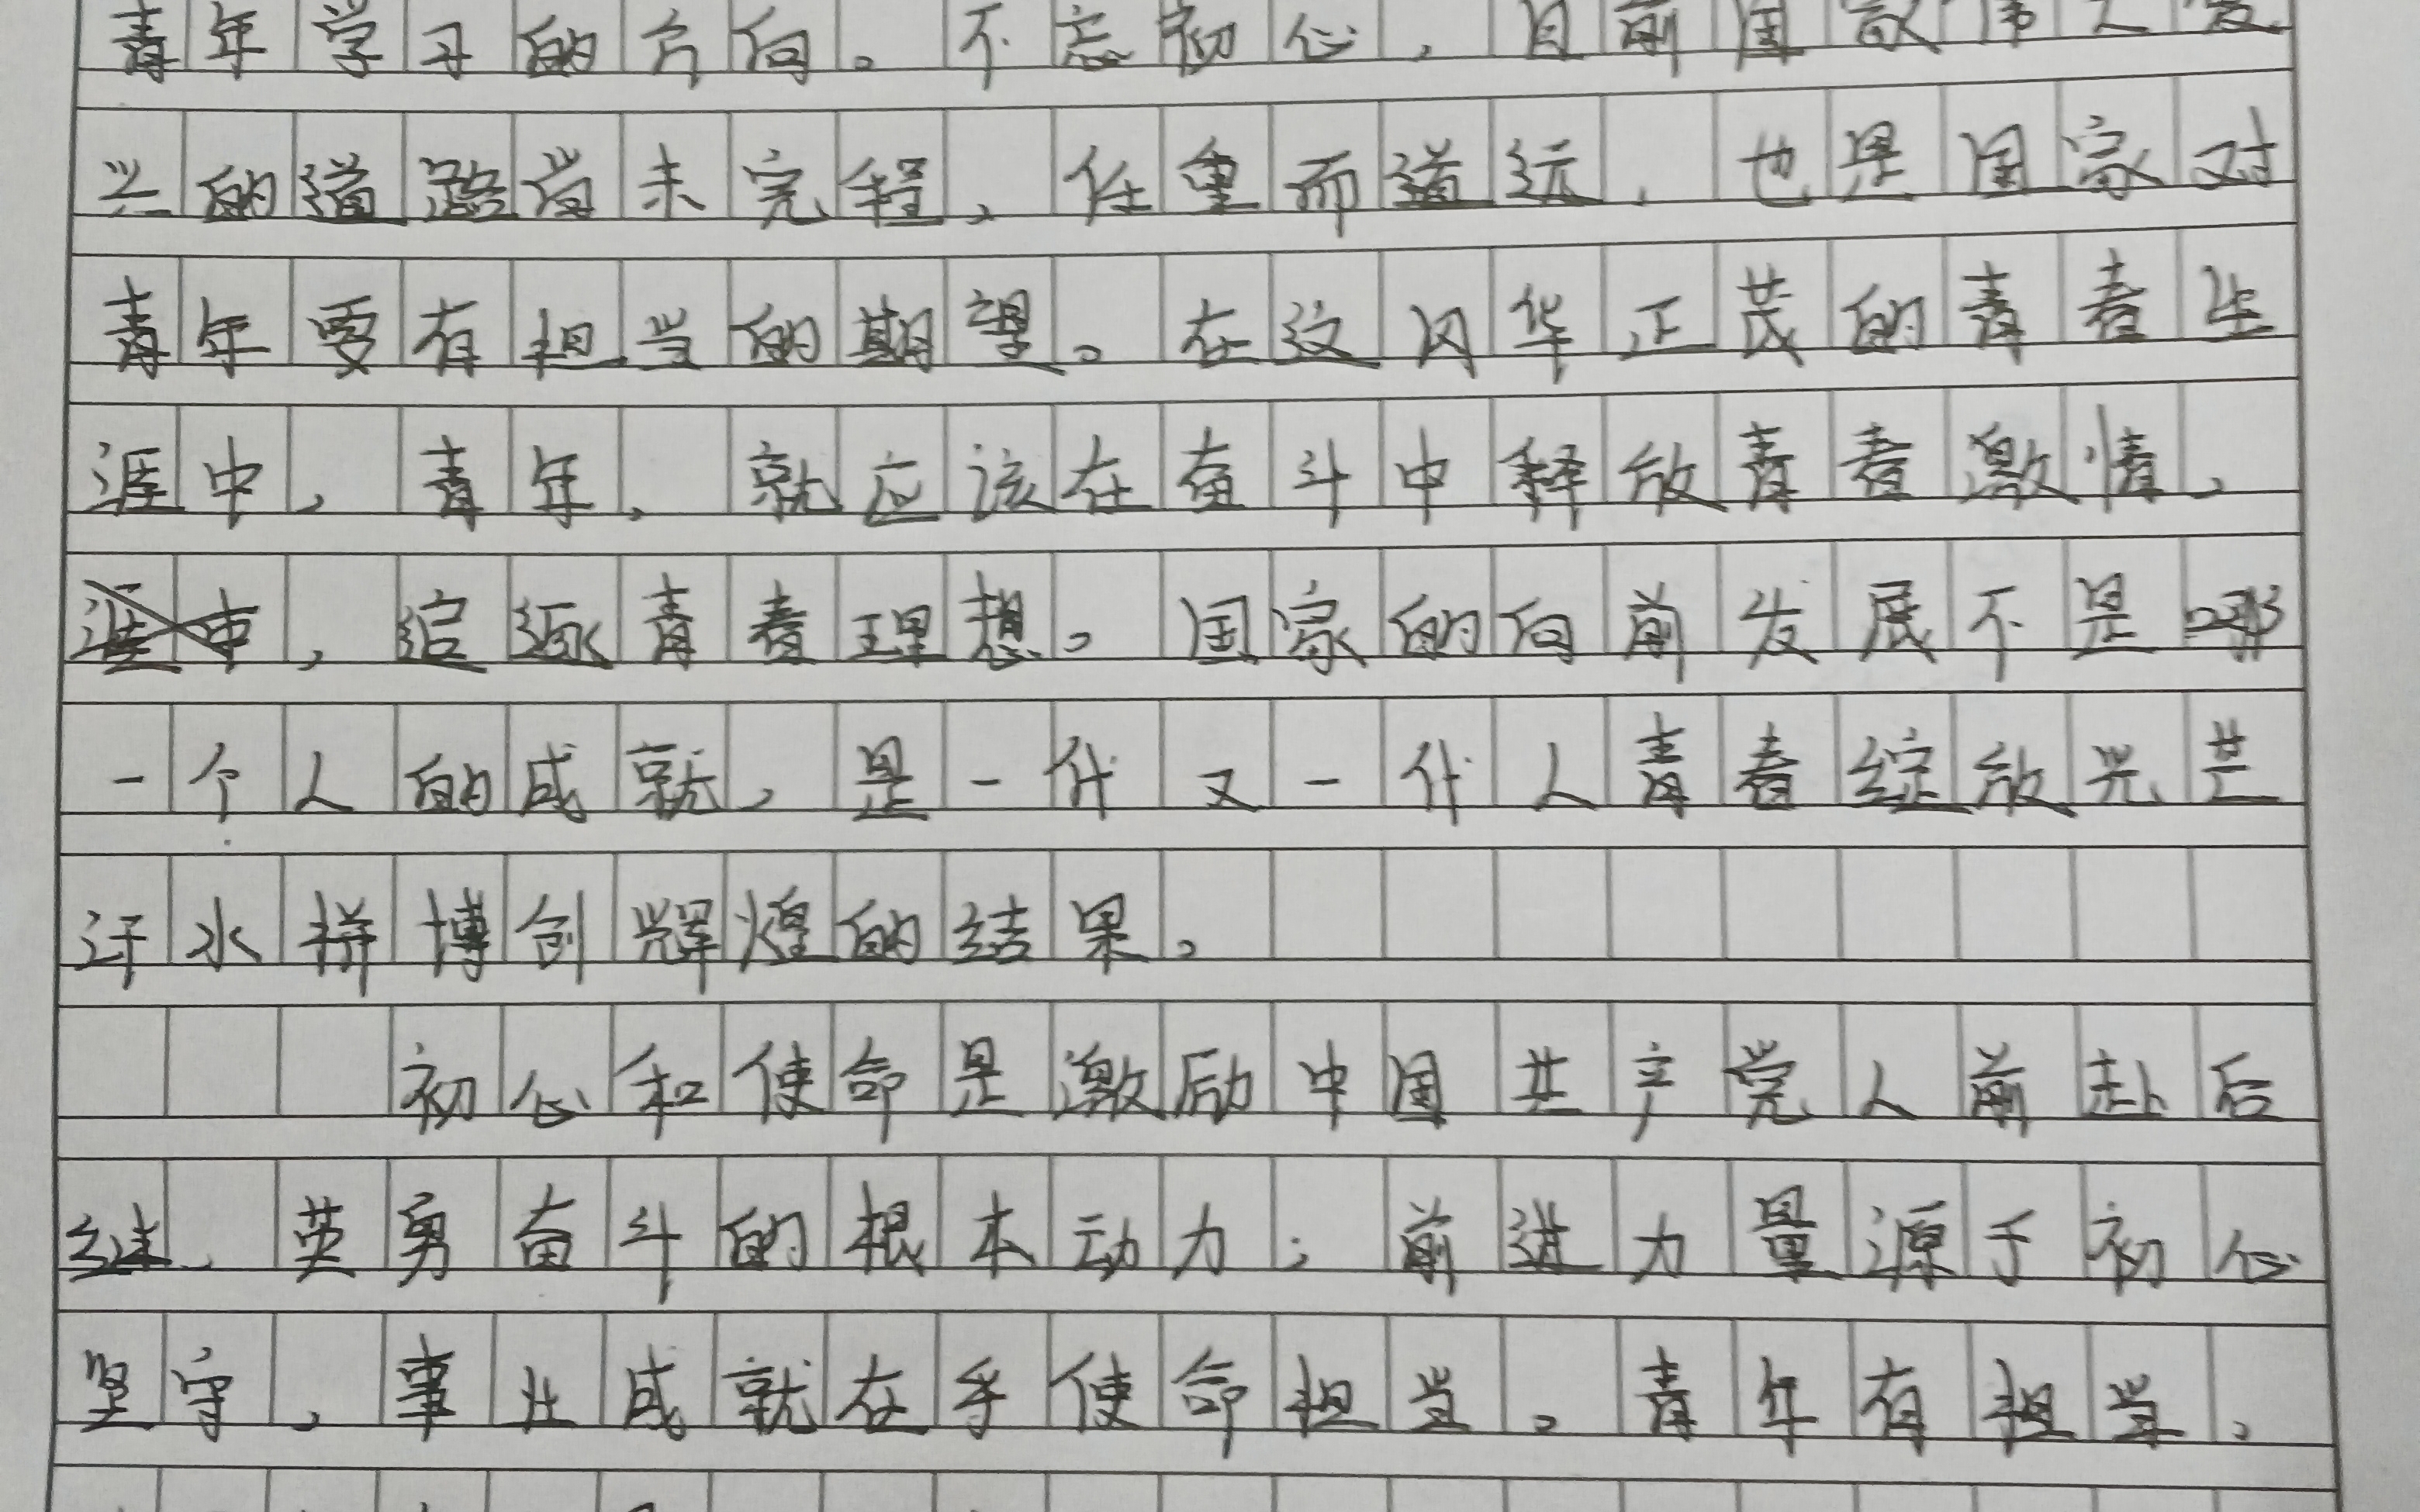 青年学习的方向。不忘初心，目前国家伟大复
兴的道路尚未完程，任重而道远，也是国家对
青年要有担当的期望。在这风华正茂的青春生
涯中，青年，就应该在奋斗中释放青春激情，
，追逐青春理想。国家的向前发展不是哪
一个人的成就，是一代又一代人青春绽放光芒
汗水拼搏创辉煌的结果。
初心和使命是激励中国共产党人前赴后
继、英勇奋斗的根本动力；前进力量源于初心
坚守，事业成就在乎使命担当。青年有担当，